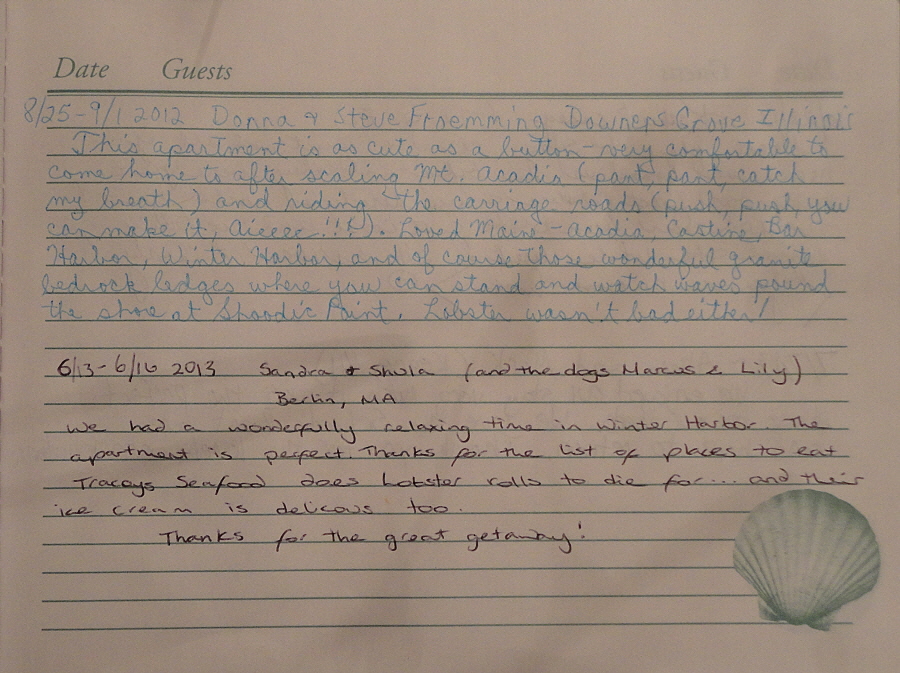 Date Guests
8/25-9/1 2012 Donna & Steve Froemming Downers Grove Illinois
This apartment is as cute as a button - very comfortable to
come home to after scaling Mt. Acadia (pant, pant, catch
my breath) and riding the carriage roads (push, push, you
can make it, aieeee!!!). Loved Maine - Acadia, Castine, Bar
Harbor, Winter Harbor, and of course those wonderful granite
bedrock ledges where you can stand and watch waves pound
the shore at Shoodic Point. Lobster wasn't bad either!
6/13-6/16 2013 Sandra & Shula (and the dogs Marcus & Lily)
Berlin, MA
We had a wonderfully relaxing time in Winter Harbor. The
apartment is perfect. Thanks for the list of places to eat
Traceys Seafood does Lobster rolls to die for... and their
ice cream is delicous too.
Thanks for the great getaway!